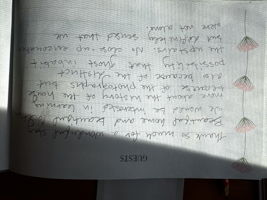 GUESTS
Thank so much for a wonderful stay
Beautiful home and beautiful
We would be interested in learning
more about the history of the house
because of the photographs but
also because of the distinct
possibility that ghosts inhabit
the upstairs. No close-up encounters
but definitely sensed that we
were not alone